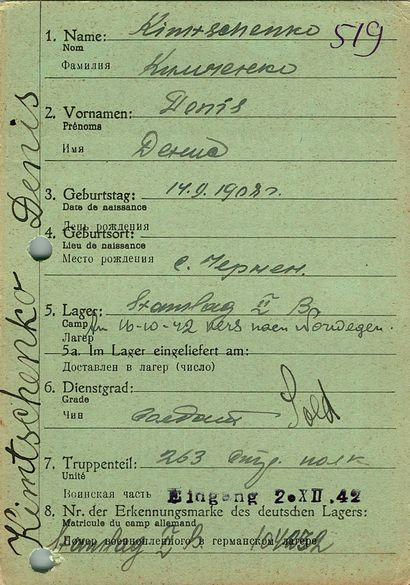 1. Name: Kimtschenko 519
Nom
Фамилия Кимченко
2. Vornamen: Denis
Prénoms
Имя Денис
3. Geburtstag: 14.9.1908 г.
Date de naissance
День рождения
4. Geburtsort:
Lieu de naissance
Место рождения с. Чернен.
5. Lager: Stamlag II B.
Camp Am 16-10-42 vers nach Norwegen.
Лагер
5a. Im Lager eingeliefert am:
Доставлен в лагер (число)
6. Dienstgrad:
Grade
Чин солдат Sold
7. Truppenteil: 263 полк
Unité
Воинская часть Eingang 2. XII. 42
8. Nr. der Erkennungsmarke des deutschen Lagers:
Matricule du camp allemand
Номер военнопленного в германском лагере
Stamlag II B.
Kimtschenko Denis